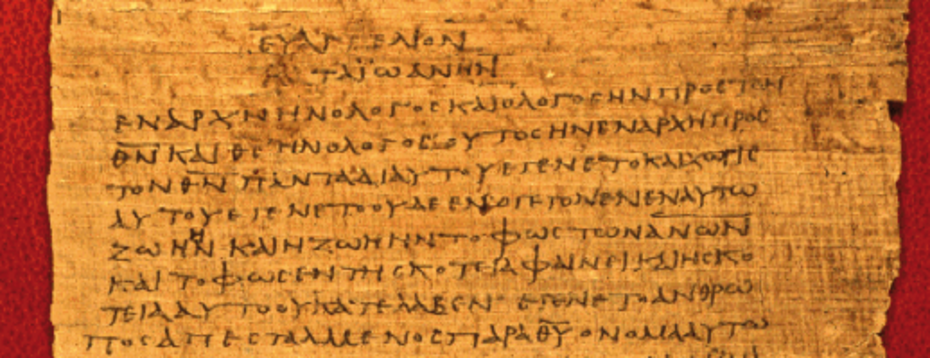 ΕΥΑΓΓΕΛΙΟΝ
ΤΑΪΩΑΝΗΝ
ΕΝΑΡΧΗΗΝΟΛΟΓΟϹΚΑΙΟΛΟΓΟϹΗΝΠΡΟϹΤΟΝ
Θ̅Ν̅ΚΑΙΘ̅Ϲ̅ΗΝΟΛΟΓΟϹΟΥΤΟϹΗΝΕΝΑΡΧΗΠΡΟϹ
ΤΟΝΘ̅Ν̅ΠΑΝΤΑΔΙΑΥΤΟΥΕΓΕΝΕΤΟΚΑΙΧΩΡΙϹ
ΑΥΤΟΥΕΓΕΝΕΤΟΟΥΔΕΕΝΟΓΕΓΟΝΕΝΕΝΑΥΤΩ
ΖΩΗΗΝΚΑΙΗΖΩΗΗΝΤΟΦΩϹΤΩΝΑ̅Ν̅Ω̅Ν̅
ΚΑΙΤΟΦΩϹΕΝΤΗϹΚΟΤΕΙΑΦΑΙΝΕΙΚΑΙΗϹΚΟ
ΤΕΙΑΑΥΤΟΟΥΚΑΤΕΛΑΒΕΝ·ΕΓΕΝΕΤΟΑΝΘΡΩ
ΠΟϹΑΠΕϹΤΑΛΜΕΝΟϹΠΑΡΑΘ̅Υ̅ΟΝΟΜΑΑΥΤΩ